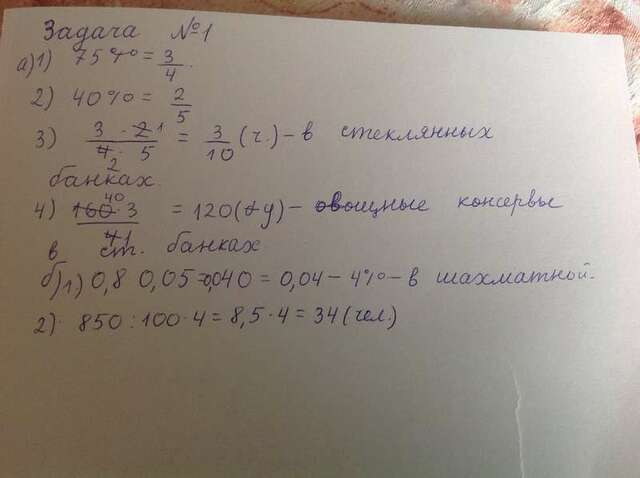 Задача №1
а) 1) 75% = 3/4.
2) 40% = 2/5
3) 3 · 2 1 / 4 2 · 5 = 3/10 (ч.) – в стеклянных
банках.
4) 160 40 · 3 / 4 1 = 120 ( – овощные консервы
в ст. банках
б) 1) 0,8 0,05 = 0,040 = 0,04 – 4% – в шахматной.
2) 850 : 100 · 4 = 8,5 · 4 = 34 (чел.)